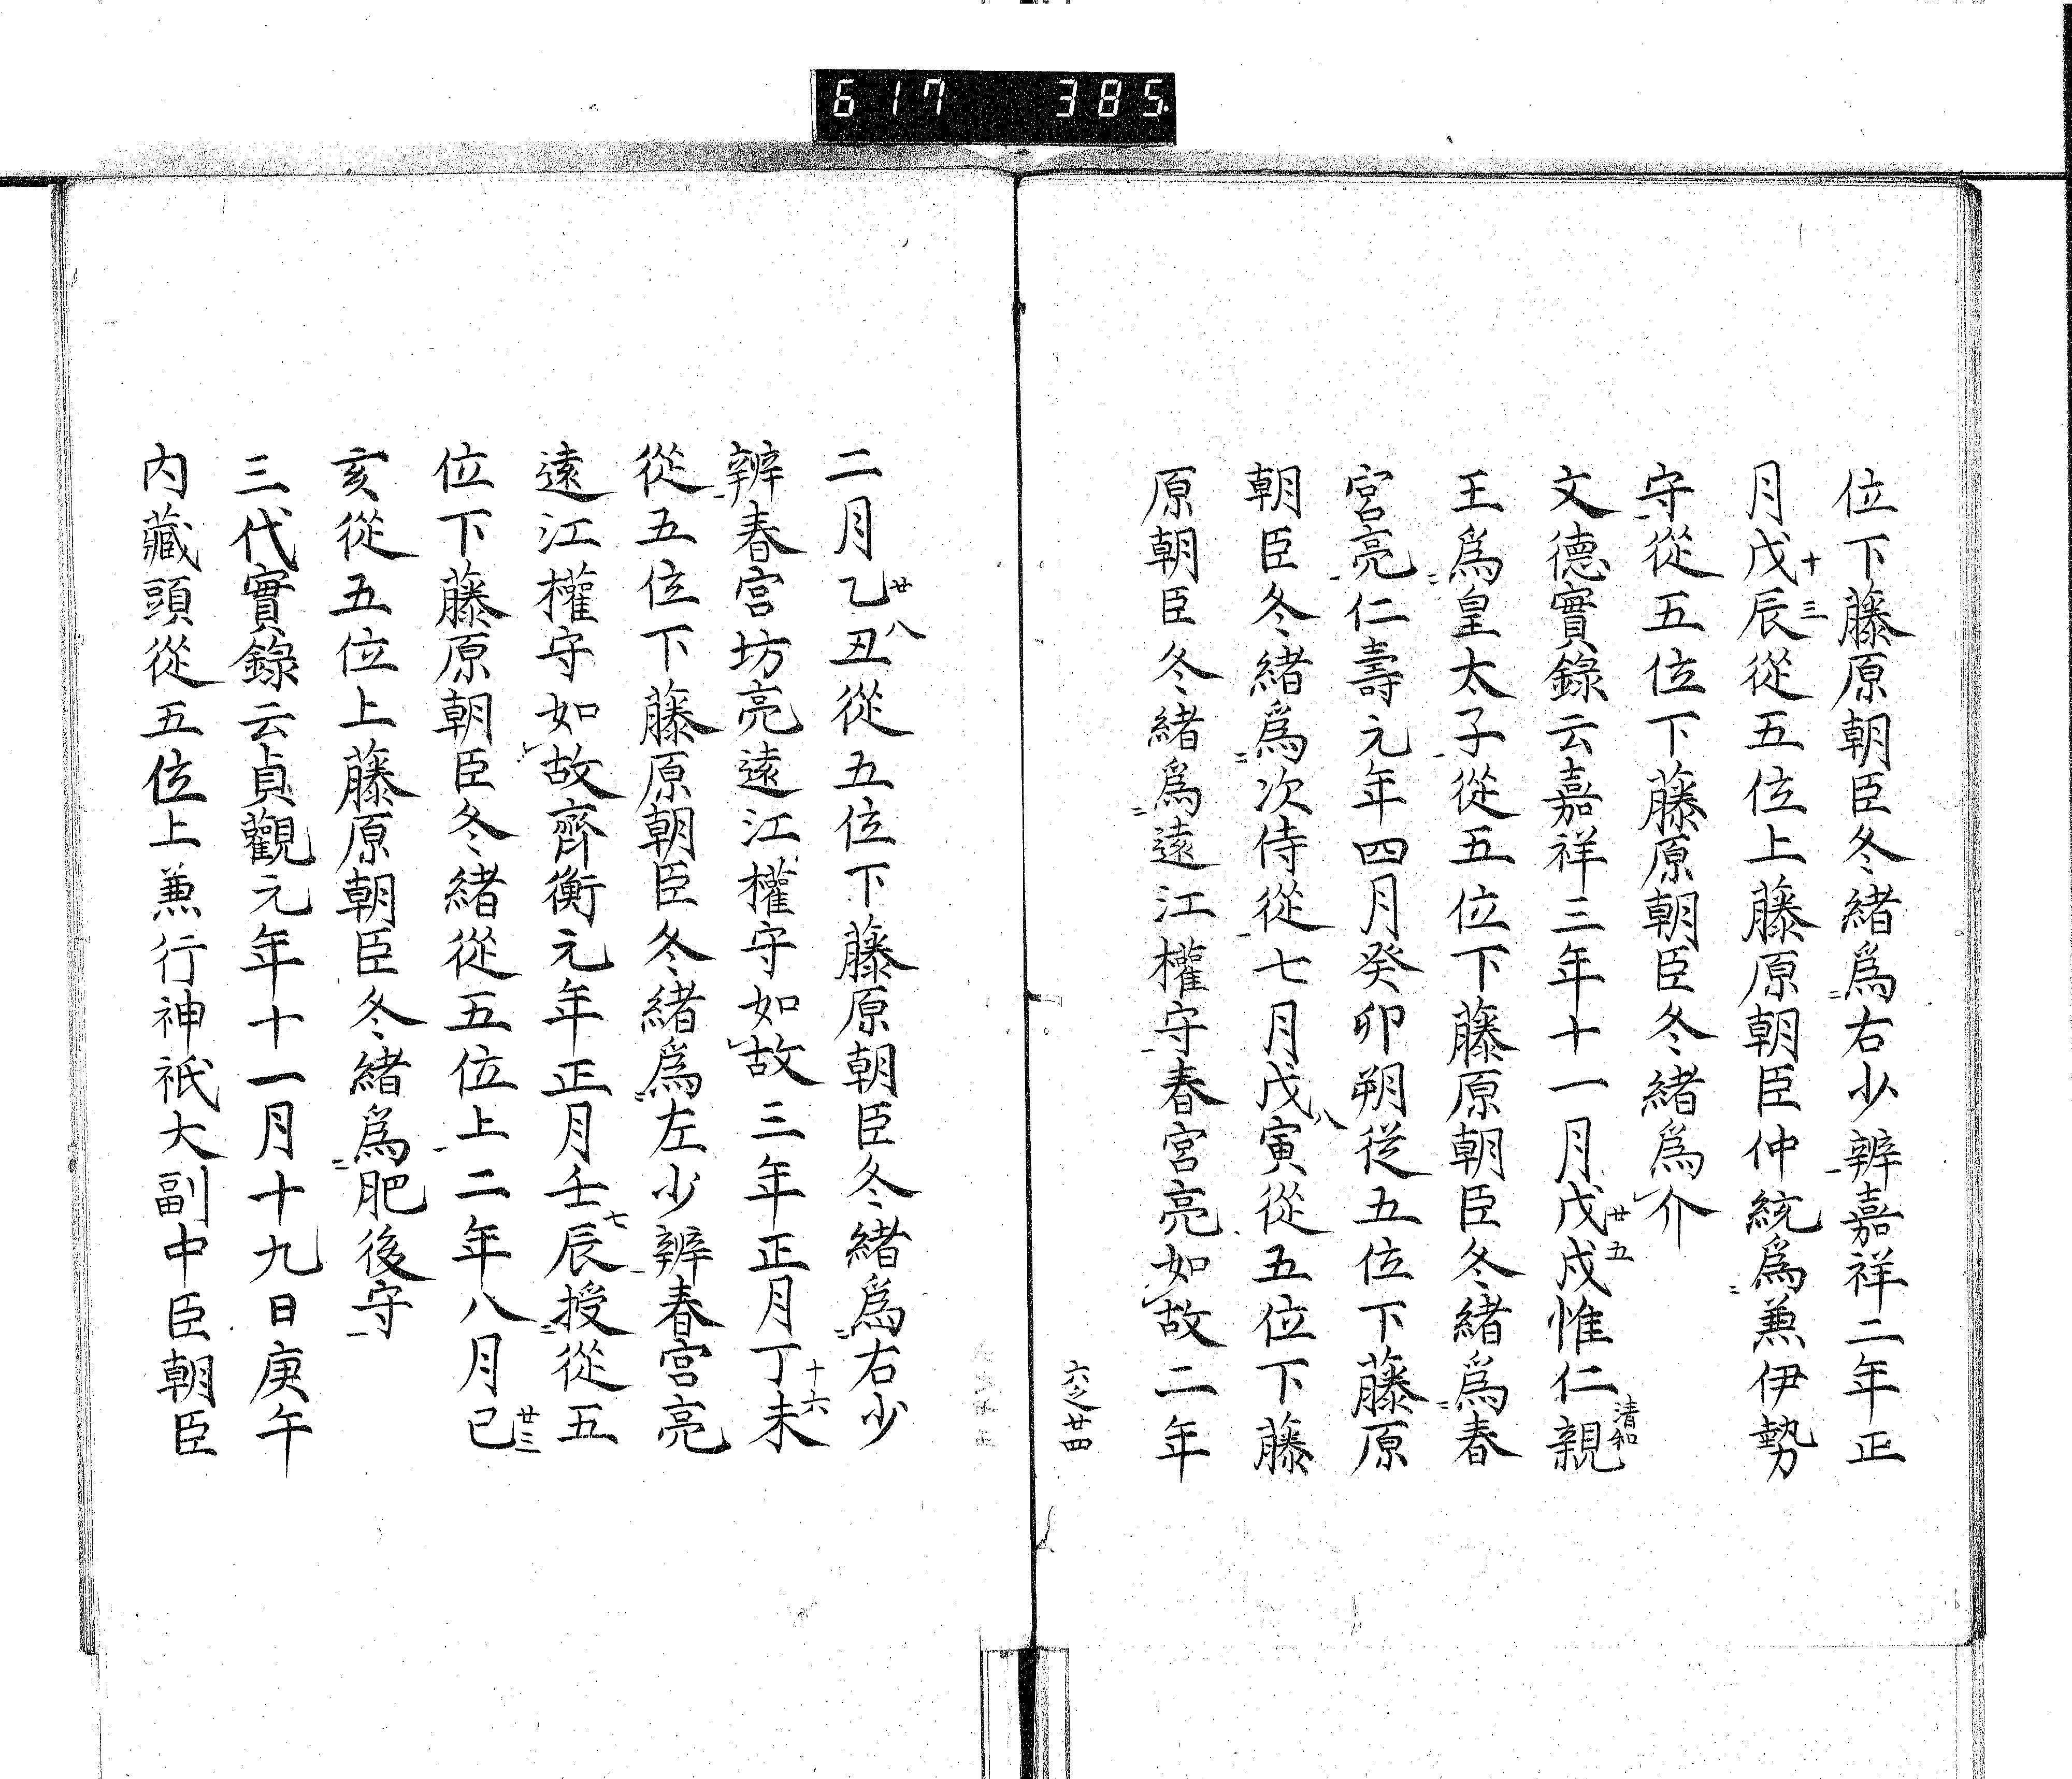 617 385
位下藤原朝臣冬緒爲右少辨嘉祥二年正
月戊辰十三從五位上藤原朝臣仲統爲兼伊勢
守從五位下藤原朝臣冬緒爲介
文德實錄云嘉祥三年十一月戊戌廿五惟仁清和親
王爲皇太子從五位下藤原朝臣冬緒爲春
宮亮仁壽元年四月癸卯朔從五位下藤原
朝臣冬緒爲次侍從七月戊寅八從五位下藤
原朝臣冬緒爲遠江權守春宮亮如故二年
六之廿四
二月乙丑廿八從五位下藤原朝臣冬緒爲右少
辨春宮坊亮遠江權守如故三年正月丁未十六
從五位下藤原朝臣冬緒爲左少辨春宮亮
遠江權守如故齊衡元年正月壬辰七授從五
位下藤原朝臣冬緒從五位上二年八月己廿三
亥從五位上藤原朝臣冬緒爲肥後守
三代實錄云貞觀元年十一月十九日庚午
内藏頭從五位上兼行神祇大副中臣朝臣